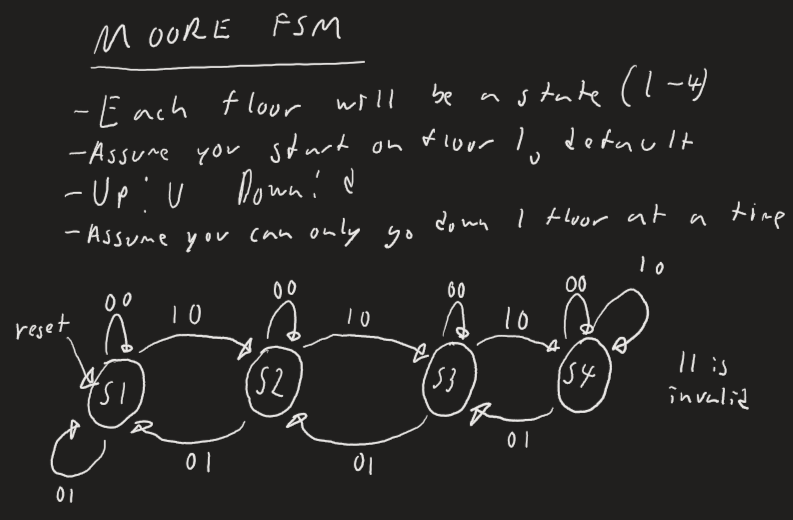 MOORE FSM
- Each floor will be a state (1-4)
- Assume you start on floor 1, default
- Up: U Down: d
- Assume you can only go down 1 floor at a time
10
00 00 00 00
reset 10 10 10
S1 S2 S3 S4
11 is
invalid
01 01 01
01